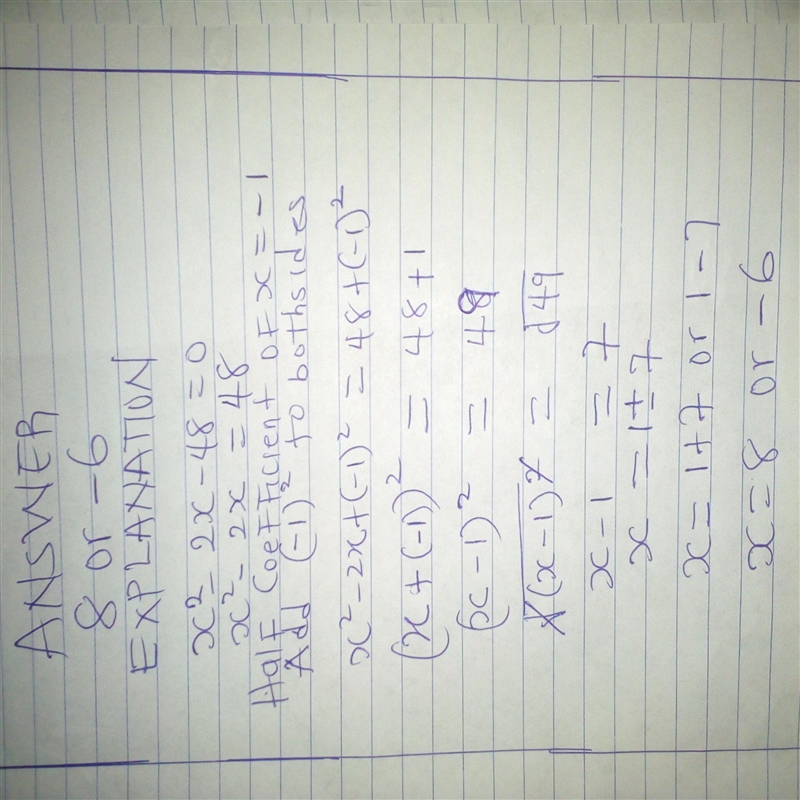 ANSWER
8 or -6
EXPLANATION
x² - 2x - 48 = 0
x² - 2x = 48
Half Coefficient of x = -1
Add (-1)² to bothsides
x² - 2x + (-1)² = 48 + (-1)²
(x + (-1))² = 48 + 1
(x - 1)² = 49
√(x - 1)² = √49
x - 1 = 7
x = 1 ± 7
x = 1 + 7 or 1 - 7
x = 8 or - 6